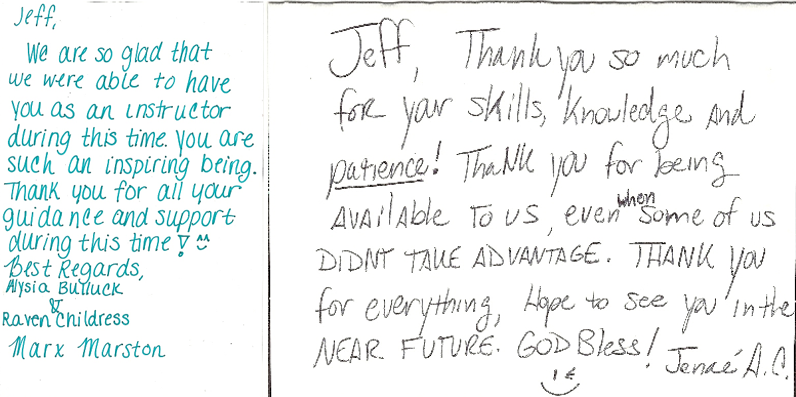 Jeff,
We are so glad that
we were able to have
you as an instructor
during this time. you are
such an inspiring being.
Thank you for all your
guidance and support
during this time!
Best Regards,
Alysia Bulluck
&
Raven Childress
Marx Marston
Jeff, Thank you so much
for your skills, knowledge And
patience! Thank you for being
AVAilAble To us, even when some of us
DIDNT TAKE ADVANTAGE. THANK you
for everything, Hope to see you in the
NEAR FUTURE. GOD Bless! Jenaé A.C.